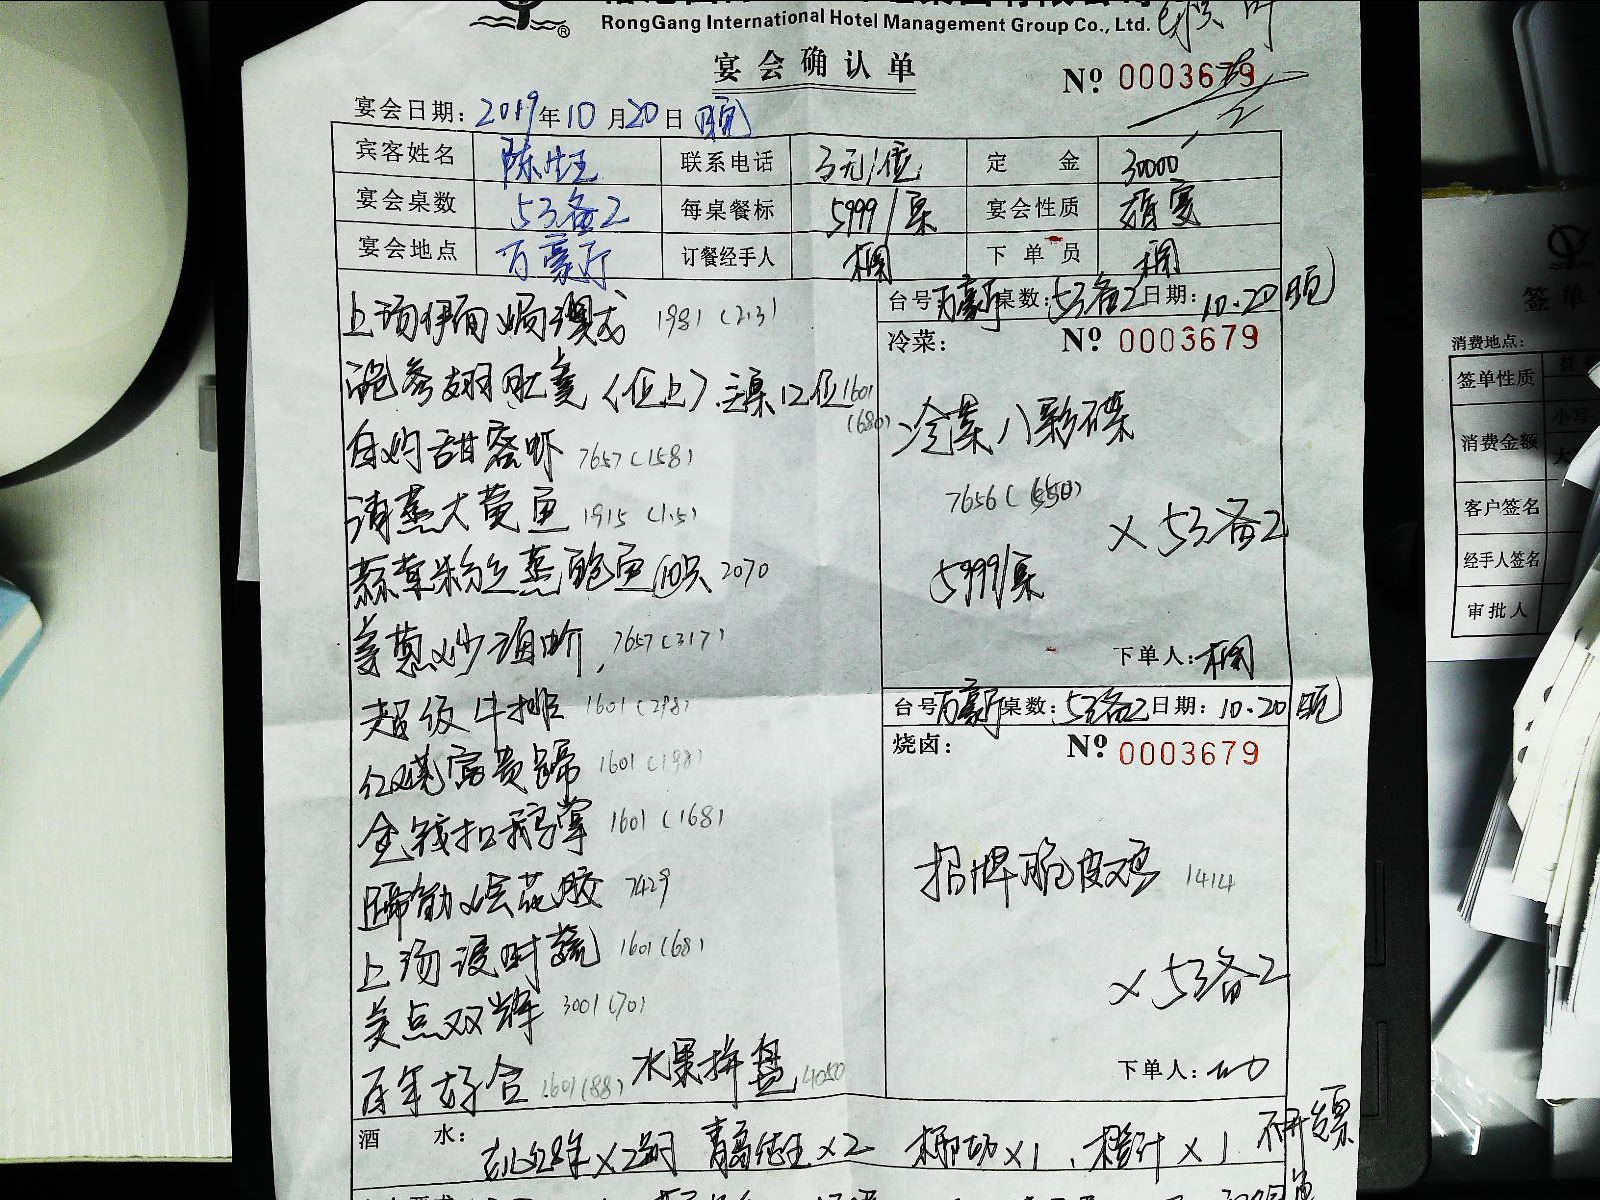 RongGang International Hotel Management Group Co., Ltd.
宴会确认单
№ 0003679
宴会日期: 2019年10月20日 晚
宾客姓名 陈生 联系电话 3元/位 定金 30000
宴会桌数 53备2 每桌餐标 5999/桌 宴会性质 婚宴
宴会地点 万豪厅 订餐经手人 下单员
上汤伊面焗澳龙 1981 (2.3)
鲍参翅肚羹(位上) 12位 1601 (680)
白灼甜蜜虾 7657 (158)
清蒸大黄鱼 1915 (1.5)
蒜茸粉丝蒸鲍鱼 10只 2070
姜葱炒 7657 (317)
超级牛排 1601 (298)
红烧富贵蹄 1601 (198)
金钱扣鹅掌 1601 (168)
蹄筋烩花胶 7429
上汤浸时蔬 1601 (68)
美点双辉 3001 (70)
百年好合 1601 (88) 水果拼盘 4050
台号 万豪厅 桌数: 53备2 日期: 10.20 晚
冷菜: № 0003679
冷菜八彩碟
7656 (550)
× 53备2
5999/桌
下单人:
台号 万豪厅 桌数: 53备2 日期: 10.20 晚
烧卤: № 0003679
招牌脆皮鸡 1414
× 53备2
下单人:
酒水: ×2 ×2 椰奶×1、橙汁×1
签单
消费地点:
签单性质
消费金额 小写
客户签名
经手人签名
审批人